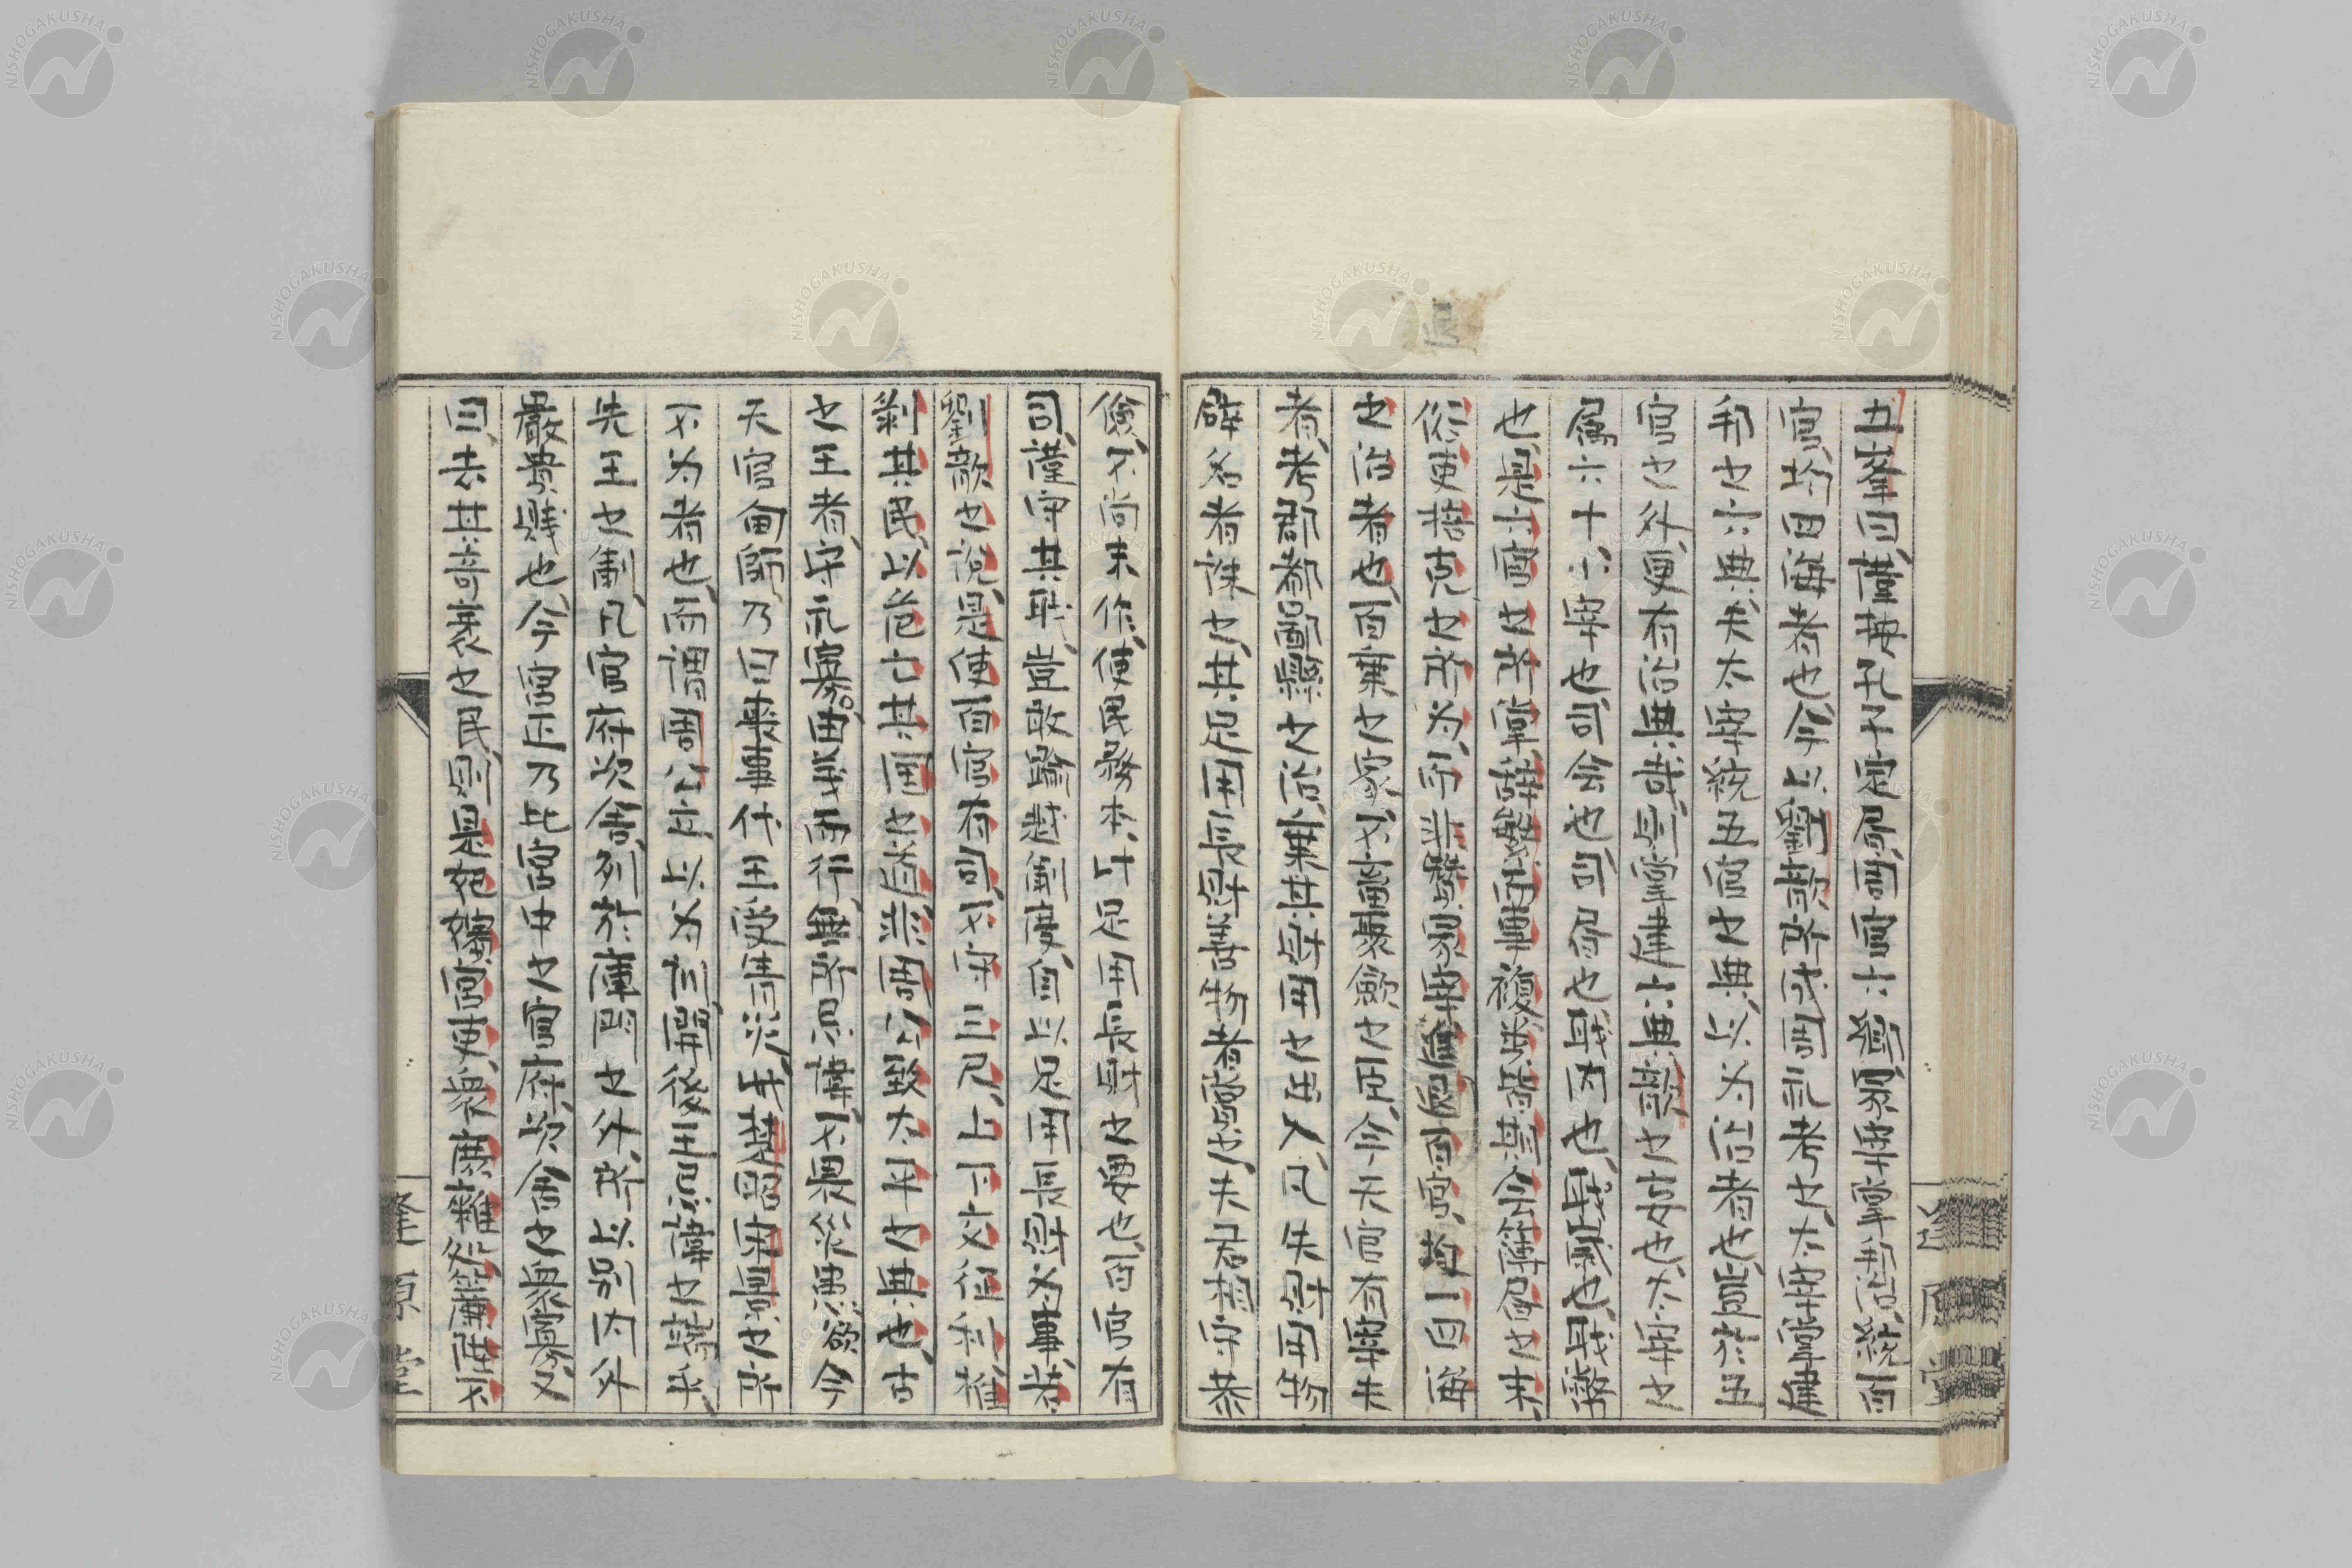 五峯曰、謹按孔子定書、周官六卿、冢宰掌邦治統百
官、均四海者也、今以劉歆所成周礼考之、太宰掌建
邦之六典、夫太宰統五官之典、以为治者也、豈於五
官之外、更有治典哉、則掌建六典、歆之妄也、太宰之
属六十、小宰也、司会也、司書也、職内也、職歳也、職幣
也、是六官之所掌、辞繁而事複、類皆期会簿書之末、
俗吏掊克之所为、而非贊冢宰進退百官、均一四海
之治者也、百乘之家、不畜聚斂之臣、今天官有宰夫
者、考郡都鄙縣之治、乘其財用之出入、凡失財用物
辟名者誅之、其足用長財善物者賞之、夫君相守恭
儉、不尚末作、使民務本、此足用長財之要也、百官有
司、謹守其職、豈敢踰越制度、自以足用長財为事、若
劉歆之說、是使百官有司不守三尺、上下交征利、椎
剝其民、以危亡其國之道、非周公致太平之典也、古
之王者、守礼寡欲、申義而行、無所忌諱、不畏災患、今
天官甸師乃曰喪事代王受眚災、此楚昭宋景之所
不为者也、而謂周公立以为訓、開後王忌諱之端乎、
先王之制、凡官府次舍列於庫門之外、所以別内外
嚴貴賤也、今宮正乃比宮中之官府次舍之衆寡、又
曰、去其奇衺之民、則是妃嬪宮吏、衆庶雜処、簾陛不